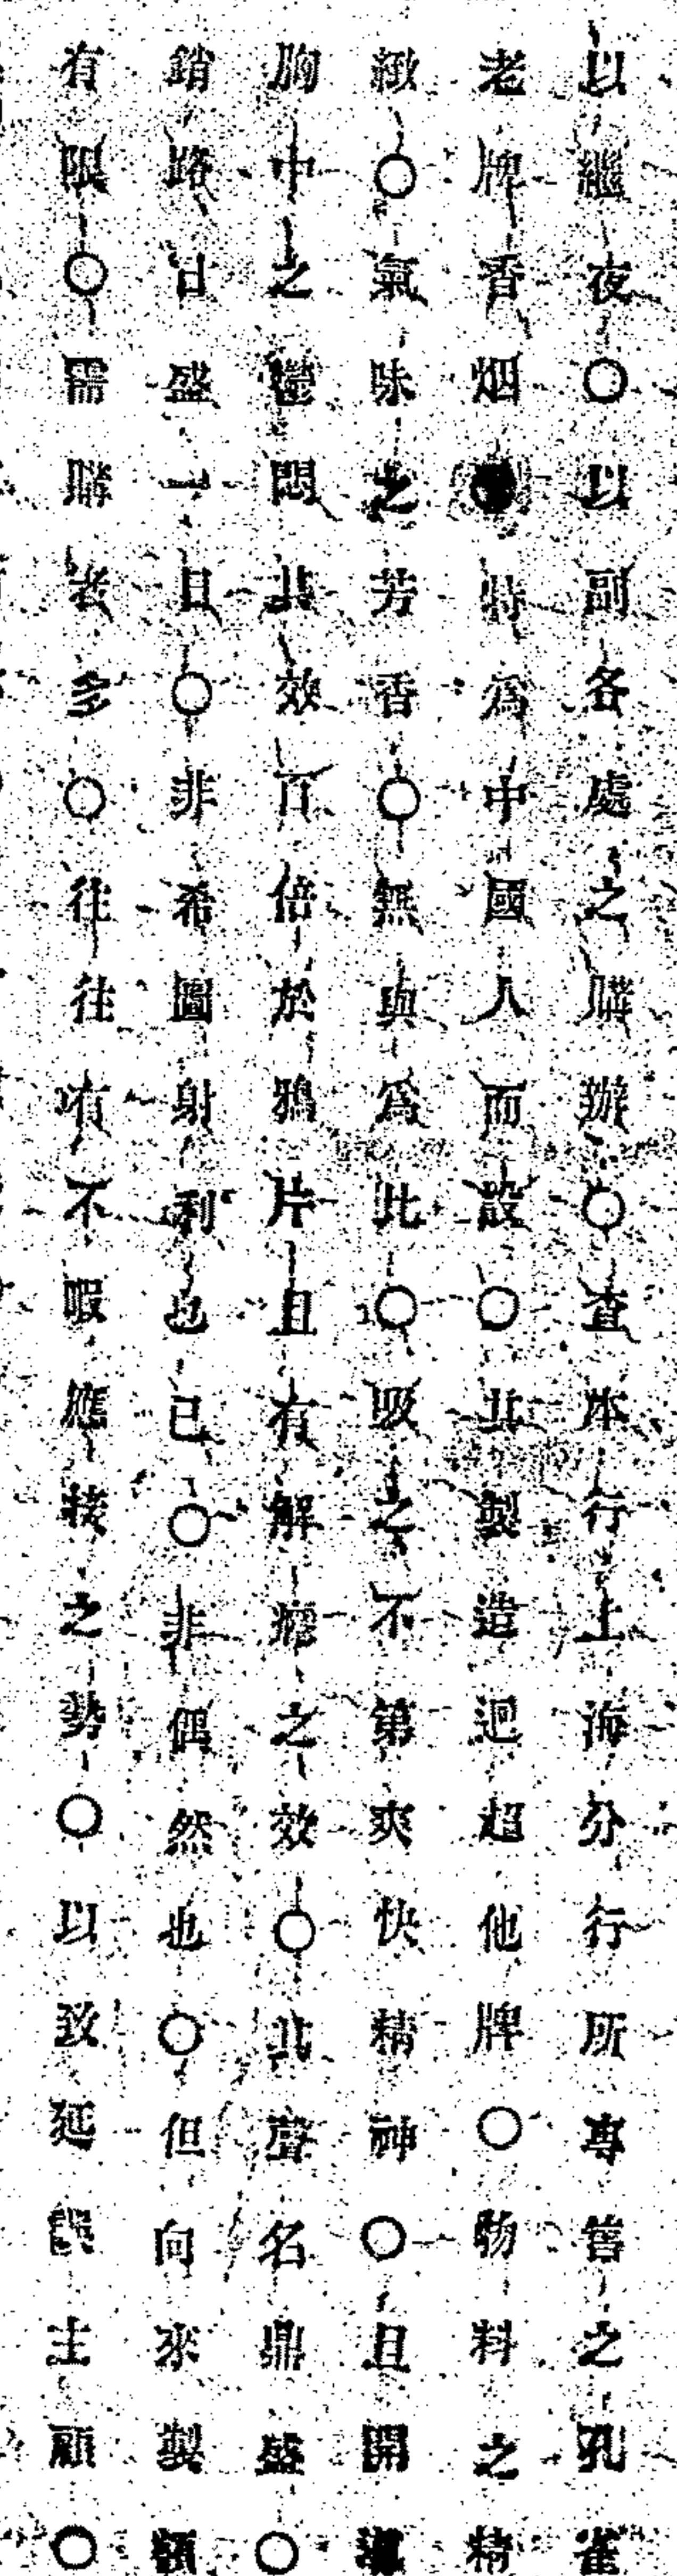 以繼夜○以副各處之購辦○查本行上海分行所專售之孔雀
老牌香烟●特爲中國人而設○其製造迥超他牌○物料之精
緻○氣味之芳香○無與爲比○吸之不第爽快精神○且開
胸中之鬱悶其效百倍於鴉片且有解癮之效○其聲名鼎盛○
銷路日盛一日○非希圖射利也已○非偶然也○但向來製額
有限○需購者多○往往有不暇應接之勢○以致延誤主顧○